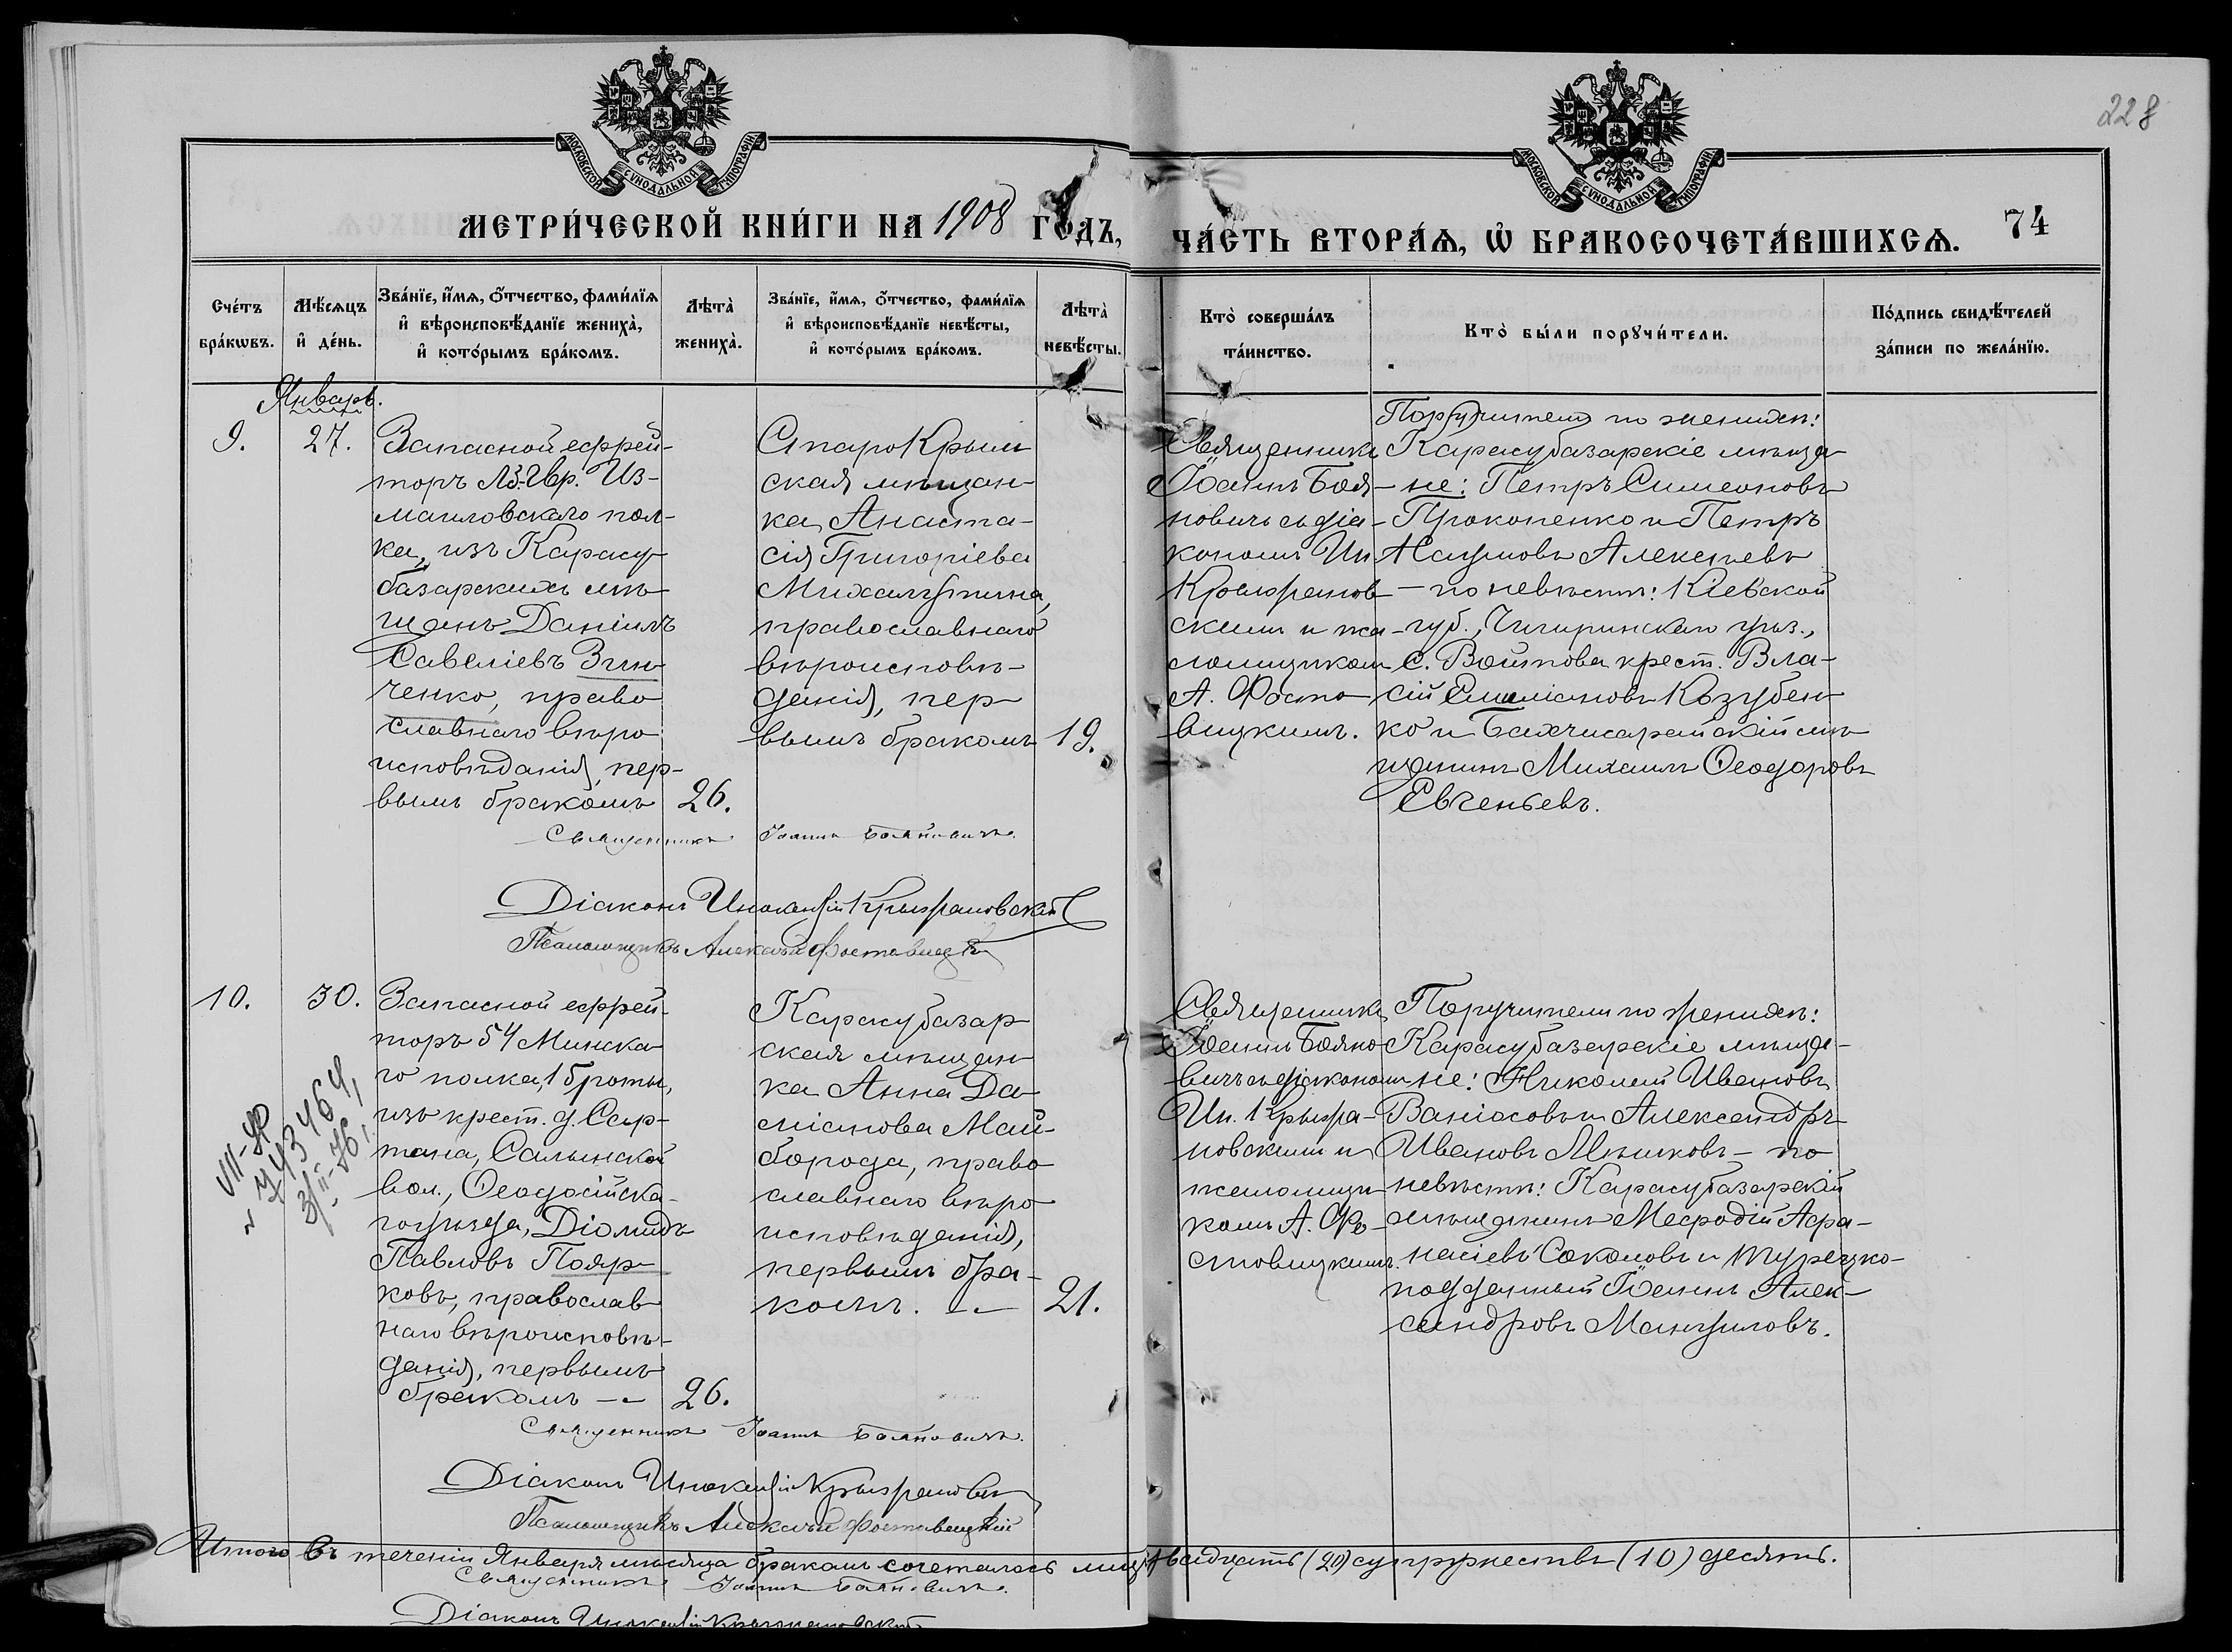 228
МОСКОВСКОЙ СѴНОДАЛЬНОЙ ТИПОГРАФІИ
МОСКОВСКОЙ СѴНОДАЛЬНОЙ ТИПОГРАФІИ
МЕТРИ́ЧЕСКОЙ КНИ́ГИ НА 1908 ГО́ДЪ,
ЧА́СТЬ ВТОРА́Ѧ, Ѡ҆ БРАКОСОЧЕТА́ВШИХСѦ.
74
Сче́тъ
бра́кωвъ.
Мѣ́сѧцъ
и҆ де́нь.
Зва́нїе, и҆́мѧ, ѻ҆́тчество, фами́лїѧ
и҆ вѣроисповѣ́данїе жениха̀,
и҆ кото́рымъ бра́комъ.
Лѣта̀
жениха̀.
Зва́нїе, и҆́мѧ, ѻ҆́тчество, фами́лїѧ
и҆ вѣроисповѣ́данїе невѣ́сты,
и҆ кото́рымъ бра́комъ.
Лѣта̀
невѣ́сты.
Кто̀ соверша́лъ
та́инство.
Кто̀ бы́ли порꙋчи́тели.
По́дпись свидѣ́телей
за́писи по жела́нїю.
Январь.
9.
27.
Запасной ефрей-
торъ Лб.-Гвр. Из-
маиловскаго пол-
ка, изъ Карасу-
базарскихъ мѣ-
щанъ Даніилъ
Савеліевъ Зин-
ченко, право
славнаго вѣро
исповѣданія, пер-
вымъ бракомъ
26.
СтароКрым
ская мѣщан-
ка Анаста-
сія Григоріева
Михалутина,
православнаго
вѣроисповѣ-
данія, пер-
вымъ бракомъ
19.
Священникъ
Іоаннъ Боя-
новичъ съ діа-
кономъ Ин.
Крыжанов-
скимъ и пса-
ломщикомъ
А. Фоста-
вицкимъ.
Поручители по женихѣ:
Карасубазарскіе мѣща-
не: Петръ Симеоновъ
Прокопенко и Петръ
Наумовъ Алексѣевъ
— по невѣстѣ: Кіевской
губ., Чигиринскаго уѣз.,
с. Войтова крест. Вла-
сій Емиліановъ Козубен-
ко и Бахчисарайскій мѣ-
щанинъ Михаилъ Ѳеодоровъ
Евгеньевъ.
Священникъ Іоаннъ Бояновичъ.
Діаконъ Инокентій Крыжановскій
Псаломщикъ Алексѣй Фоставицкій
10.
30.
Запасной ефрей-
торъ 54 Минска-
го полка, 16 роты,
изъ крест. д. Сар-
тана, Салынской
вол., Ѳеодосійска-
го уѣзда, Діомидъ
Павловъ Пояр-
ковъ, православ-
наго вѣроисповѣ-
данія, первымъ
бракомъ —
26.
Карасубазар
ская мѣщан-
ка Анна Да-
міанова Май-
борода, право
славнаго вѣро
исповѣданія,
первымъ бра-
комъ. —
21.
Священникъ
Іоаннъ Бояно-
вичъ съ діакономъ
Ин. Крыжа-
новскимъ и
псаломщи-
комъ А. Фо-
ставицкимъ.
Поручители по женихѣ:
Карасубазарскіе мѣща-
не: Николай Ивановъ
Ваніасовъ и Александръ
Ивановъ Мѣшковъ — по
невѣстѣ: Карасубазарскій
мѣщанинъ Меѳодій Афа-
насіевъ Соколовъ и турецко-
подданный Іоаннъ Алек-
сандровъ Манжиловъ.
VII-АР
743464,
3/II-76.
Священникъ Іоаннъ Бояновичъ.
Діаконъ Инокентій Крыжановскій
Псаломщикъ Алексѣй Фоставицкій
Итого въ теченіи Января мѣсяца бракомъ сочеталось лицъ двадцать (20) супружествъ (10) десять.
Священникъ Іоаннъ Бояновичъ.
Діаконъ Инокентій Крыжановскій